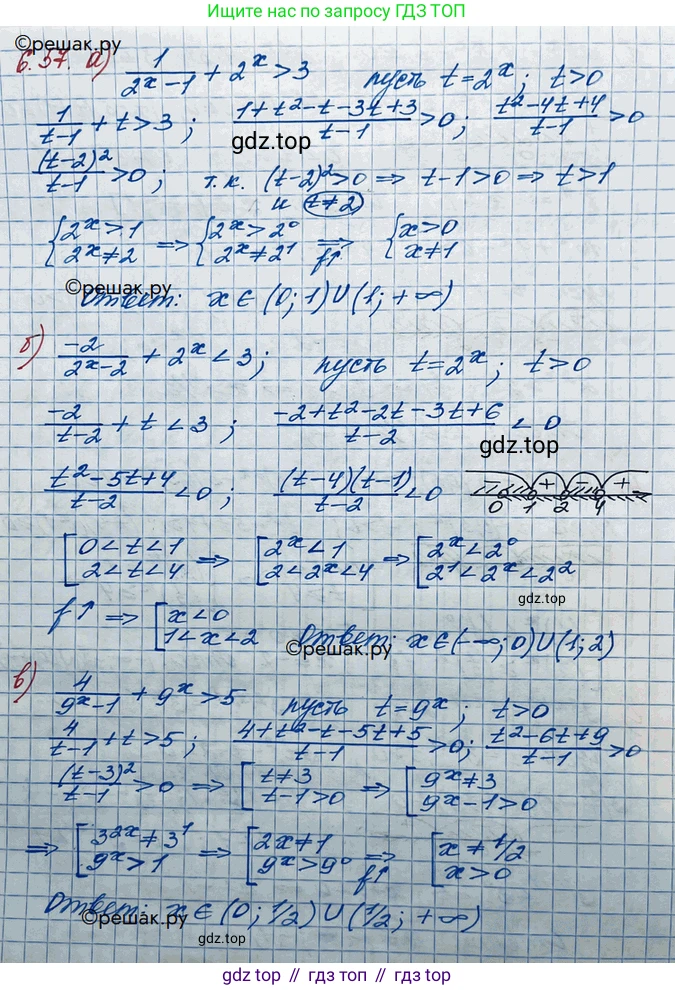 Ищите ответ по запросу ГДЗ ТОП
©решак.ру
6.57. а) 1/(2ˣ−1) + 2ˣ > 3 пусть t = 2ˣ; t > 0
1/(t−1) + t > 3; (1+t²−t−3t+3)/(t−1) > 0; (t²−4t+4)/(t−1) > 0
gdz.top
(t−2)²/(t−1) > 0; т.к. (t−2)² > 0 ⇒ t−1 > 0 ⇒ t > 1
и t≠2
{2ˣ > 1 ⇒ {2ˣ > 2⁰ ⇒ {x > 0
{2ˣ ≠ 2 {2ˣ ≠ 2¹ f↑ {x ≠ 1
©решак.ру
Ответ: x ∈ (0; 1) ∪ (1; +∞)
б) −2/(2ˣ−2) + 2ˣ < 3; пусть t = 2ˣ; t > 0
−2/(t−2) + t < 3; (−2+t²−2t−3t+6)/(t−2) < 0
gdz.top
(t²−5t+4)/(t−2) < 0; (t−4)(t−1)/(t−2) < 0 − + − +
0 1 2 4
[0 < t < 1 ⇒ [2ˣ < 1 ⇒ [2ˣ < 2⁰
[2 < t < 4 [2 < 2ˣ < 4 [2¹ < 2ˣ < 2²
gdz.top
f↑ ⇒ [x < 0
[1 < x < 2 Ответ: x ∈ (−∞; 0) ∪ (1; 2)
©решак.ру
в) 4/(9ˣ−1) + 9ˣ > 5 пусть t = 9ˣ; t > 0
4/(t−1) + t > 5; (4+t²−t−5t+5)/(t−1) > 0; (t²−6t+9)/(t−1) > 0
(t−3)²/(t−1) > 0 ⇒ [t ≠ 3 ⇒ [9ˣ ≠ 3
[t−1 > 0 [9ˣ−1 > 0
⇒ [3²ˣ ≠ 3¹ ⇒ [2x ≠ 1 ⇒ [x ≠ 1/2
[9ˣ > 1 [9ˣ > 9⁰ f↑ [x > 0
Ответ: x ∈ (0; 1/2) ∪ (1/2; +∞)
©решак.ру
gdz.top
gdz.top // гдз.топ // gdz.top